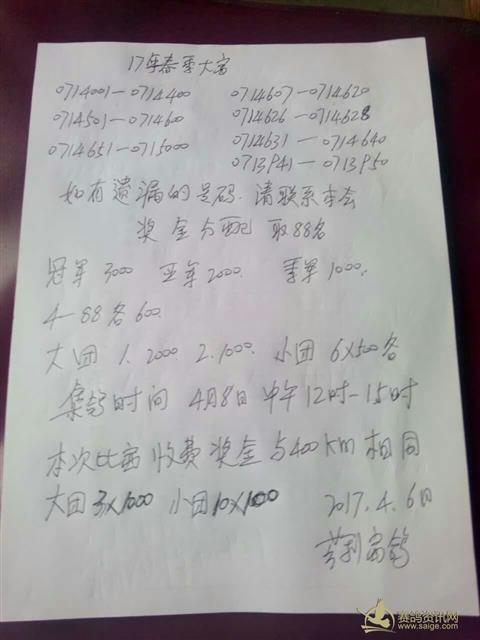 17年春季大富
0714001—0714400 0714607—0714620
0714501—0714600 0714626—0714628
0714651—0715000 0714631—0714640
0713941—0713950
如有遗漏的号码.请联系本会
奖金分配 取88名
冠军3000 亚军2000. 季军1000.
4—88名600.
大团 1.2000. 2.1000. 小团 6X500名
集鸽时间 4月8日 中午12时—15时
本次比富收费奖金与400KM相同
大团3X1000 小团10X100
2017.4.6日
富鸽
赛鸽资讯网
www.saige.com